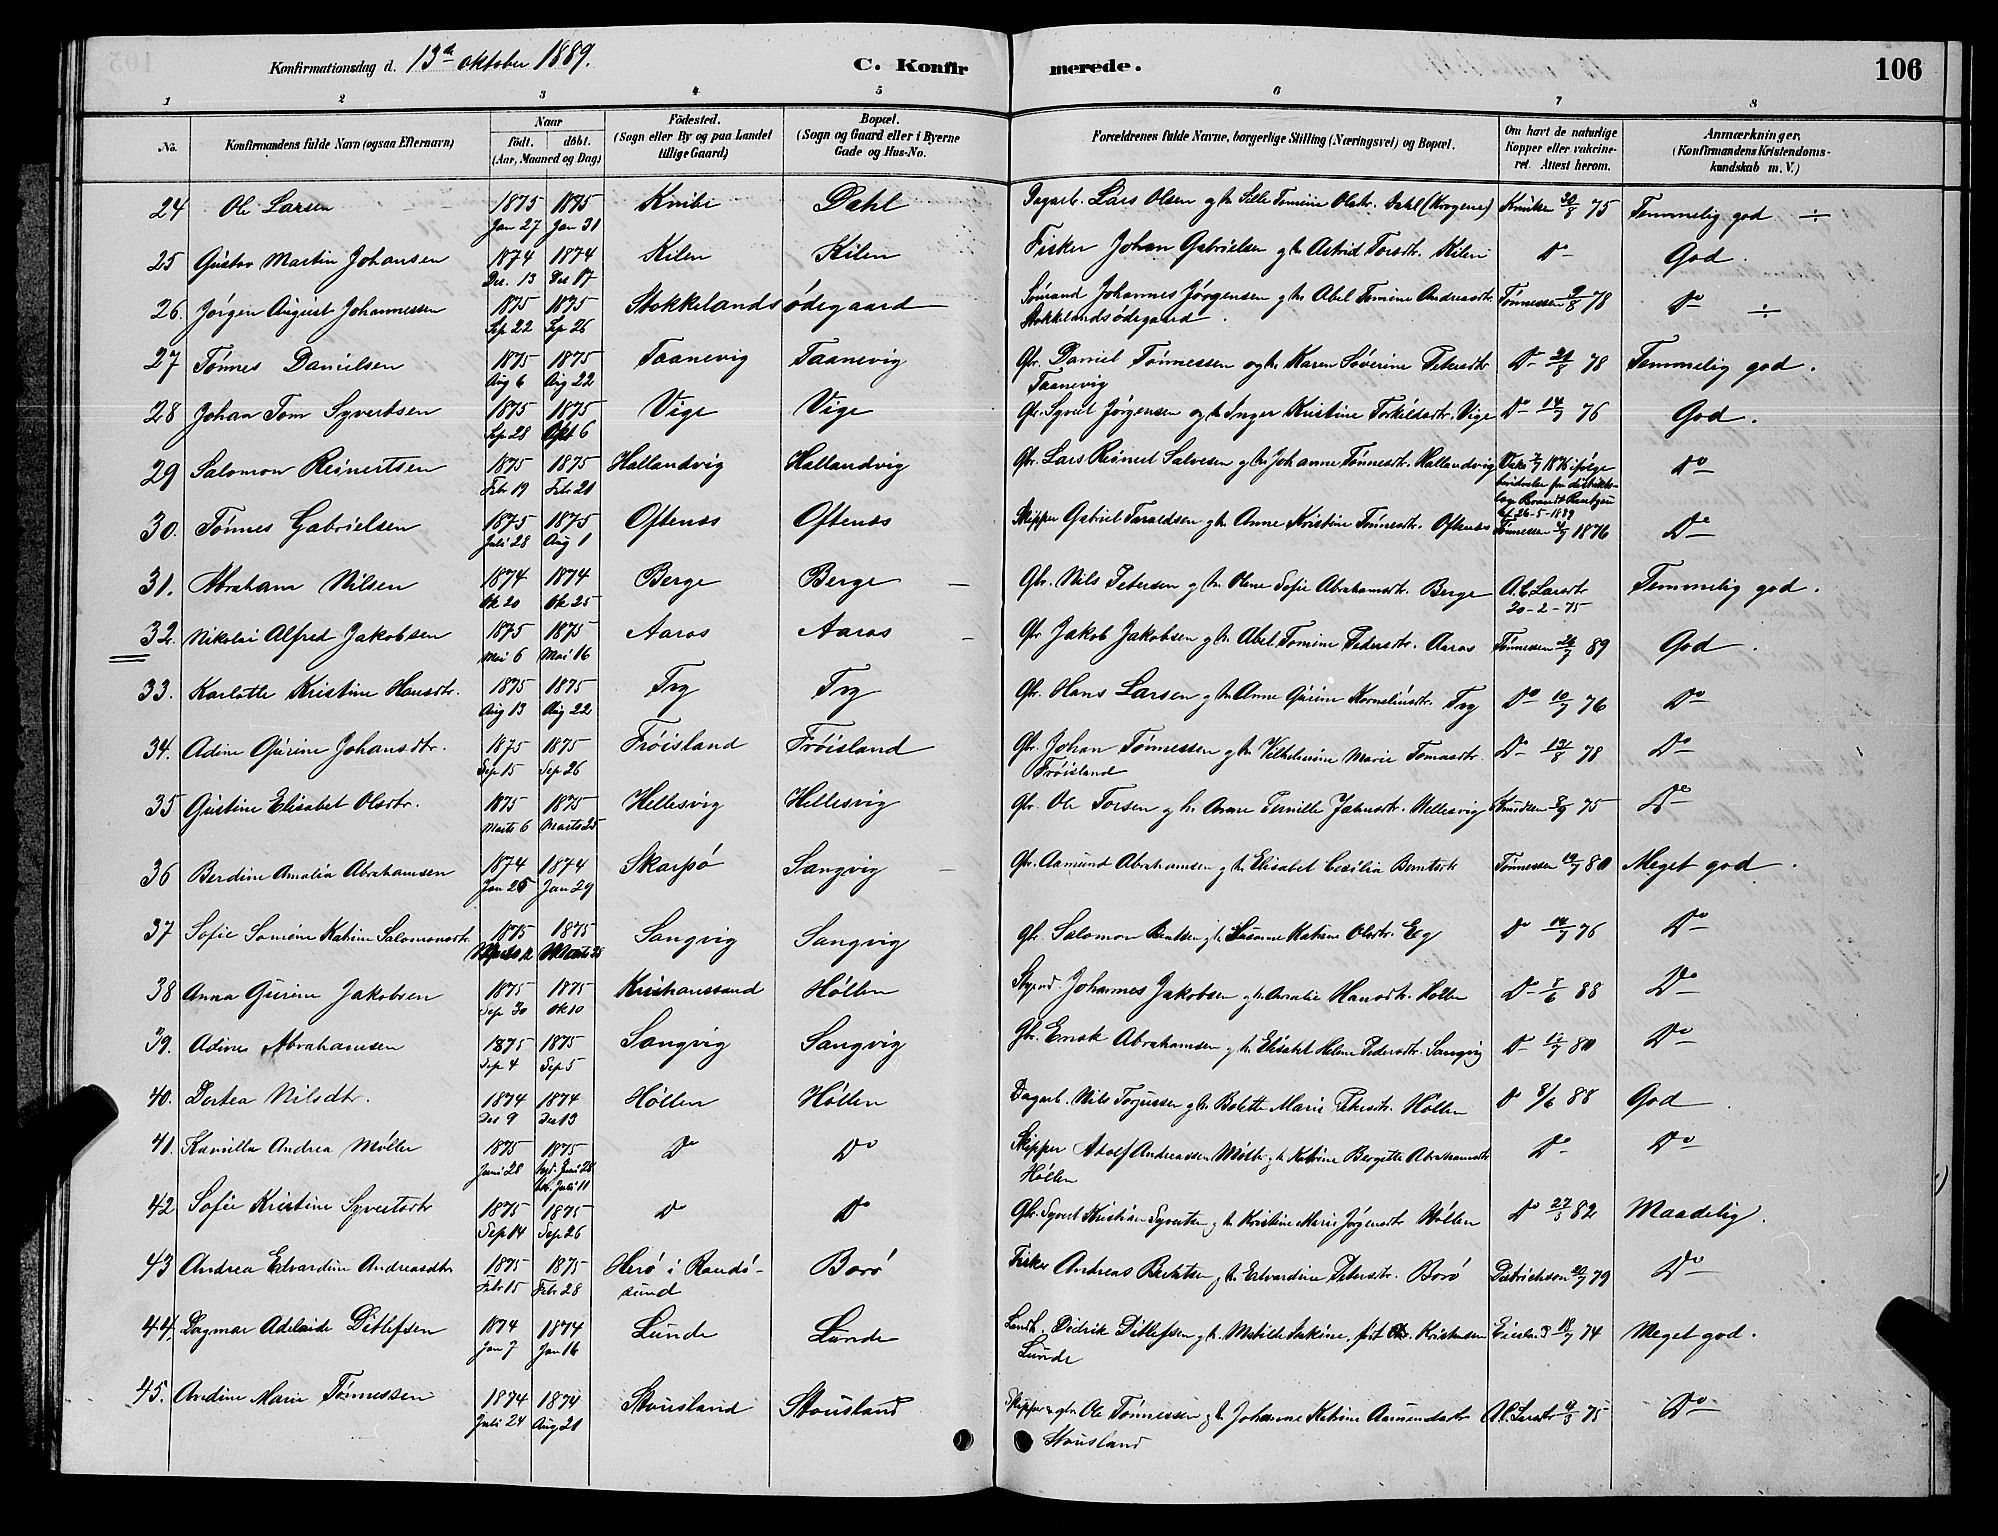 Konfirmationsdag d. 13de oktober 1889. C. Konfirmerede. 106
1 2 3 4 5 6 7 8
No. Konfirmandens fulde Navn (ogsaa Efternavn) Naar født. døbt. (Aar, Maaned og Dag) Fødested. (Sogn eller By og paa Landet tillige Gaard) Bopæl. (Sogn og Gaard eller i Byerne Gade og Hus-No. Forældrenes fulde Navne, borgerlige Stilling (Næringsvei) og Bopæl. Om havt de naturlige Kopper eller vakcineret. Attest herom. Anmærkninger. (Konfirmandens Kristendomskundskab m. V.)
24 Ole Larsen 1875 Jan 27 1875 Jan 31 Knibe Dahl Dagarb. Lars Olsen g h Sille Tomine Olsdtr. Dahl (Krogene) 30/8 75 Temmelig god ÷
25 Gustav Martin Johansen 1874 Des. 13 1874 Des 17 Kilen Kilen Fisker Johan Gabrielsen g h Astrid Torsdtr. Kilen Do God.
26. Jørgen August Johannessen 1875 Sep 22 1875 Sep 26 Stokkelandsødegaard Sømand Johannes Jørgensen g h Abel Tomine Andreasdtr. Tønnessen 9/8 78 Do ÷
Stokkelandsødegaard.
27 Tønnes Danielsen 1875 Aug 6 1875 Aug 22 Taanevig Taanevig Gbr. Daniel Tønnessen og h Karen Søverine Petersdtr Do 21/8 78 Temmelig god.
Taanevig
28 Johan Tom Syvertsen 1875 Sep 28 1875 Okt 6 Vige Vige Gbr. Syvert Jørgensen og h Inger Kristine Torkildsdtr. Vige Do 14/7 76 God.
29 Salomon Reinertsen 1875 Febr 19 1875 Febr 21 Hallandvig Hallandvig Gbr. Lars Reinert Salvesen g h Johanne Tønnesdtr. Hallandvig 1876 ifølge Do
af 26-5-1889
30. Tønnes Gabrielsen 1875 Juli 28 1875 Aug 1 Oftenæs Oftenæs Skipper Gabriel Taraldsen g h Anne Kristine Tønnesdtr. Oftenæs Tønnessen 4/7 1876 Do
31. Abraham Nilsen 1874 Ok 20 1874 Ok 25 Berge Berge Gbr. Nils Petersen g h Olene Sofie Abrahamsdtr. Berge A. C. Larsdtr 20-2-75 Temmelig god.
32. Nikolai Alfred Jakobsen 1875 Mai 6 1875 Mai 16 Aaros Aaros Gbr Jakob Jakobsen g h Abel Tomine Pedersdtr. Aaros Tønnessen 26/7 89 God.
33. Karlotte Kristine Hansdtr. 1875 Aug 13 1875 Aug 22 Try Try Gbr. Hans Larsen g h Anne Gurine Korneliusdtr. Try Do 10/7 76 Do
34. Adine Gurine Johansdtr. 1875 Sep 15 1875 Sep 26 Frøisland Frøisland Gbr. Johan Tønnessen g h Vilhelmine Marie Tomasdtr. Do 12/8 78 Do
Frøisland
35 Gustine Elisabet Olsdtr. 1875 Marts 6 1875 Marts 25 Hellesvig Hellesvig Gbr. Ole Torsen g h Anne Pernille Jahnsdtr. Hellesvig Knudsen 8/9 75 Do
36 Berdine Amalia Abrahamsen 1874 Jan 25 1874 Jan 29 Skarpø Sangvig Gbr. Aamund Abrahamsen g h Elisabet Cecilia Berntsdtr Tønnessen 12/7 80 Meget god.
37 Sofie Somine Katrine Salomonsdtr. 1875 1875 Marts 28 Sangvig Sangvig Gbr. Salomon Bentsen g h Susanne Katrine Olsdtr. Eg Do 14/7 76 Do
38 Anna Gurine Jakobsen 1875 Sep 30 1875 Ok 10 Kristianssand Høllen Styrmd. Johannes Jakobsen g h Amalie Hansdtr. Høllen Do 8/6 88 Do
39. Adine Abrahamsen 1875 Sep 4 1875 Sep 5 Sangvig Sangvig Gbr. Enok Abrahamsen g h Elisabet Helene Pedersdtr. Sangvig Do 12/7 80 Do
40. Dortea Nilsdtr. 1874 Des 9 1874 Des 13 Høllen Høllen Dagarb. Nils Torjussen g h Bolette Marie Petersdtr. Høllen Do 8/6 88 God
41. Kamilla Andrea Møller 1875 Juni 28 1875 Juni 28 Juli 11 Do Do Skipper Adolf Andreassen Møller g h Katrine Bergitte Abrahamsdtr Do Do
Høllen
42 Sofie Kristine Syvertsdtr 1875 Sep 14 1875 Sep 26 Do Do Gbr. Syvert Kristian Syvertsen g h Kristine Marie Jørgensdtr Høllen Do 27/5 82 Maadelig.
43 Andrea Edvardine Andreasdtr 1875 Febr 15 1875 Febr 28 Herø i Randøsund Borø Fisker Andreas Berntsen g h Edvardine Petersdtr. Borø Dietrichson 20/7 79 Do
44. Dagmar Adelaide Ditlefsen 1874 Jan 7 1874 Jan 16 Lunde Lunde Landh. Didrik Ditlefsen g h. Matilde Sakine, født Kristensen 18/7 74 Meget god.
Lunde
45. Andine Marie Tønnessen 1874 Juli 24 1874 Aug 21 Stousland Stousland Skipper & gbr. Ole Tønnessen g h Johanne Katrine Aamundsdtr A. C. Larsdtr 75 Do
Stousland